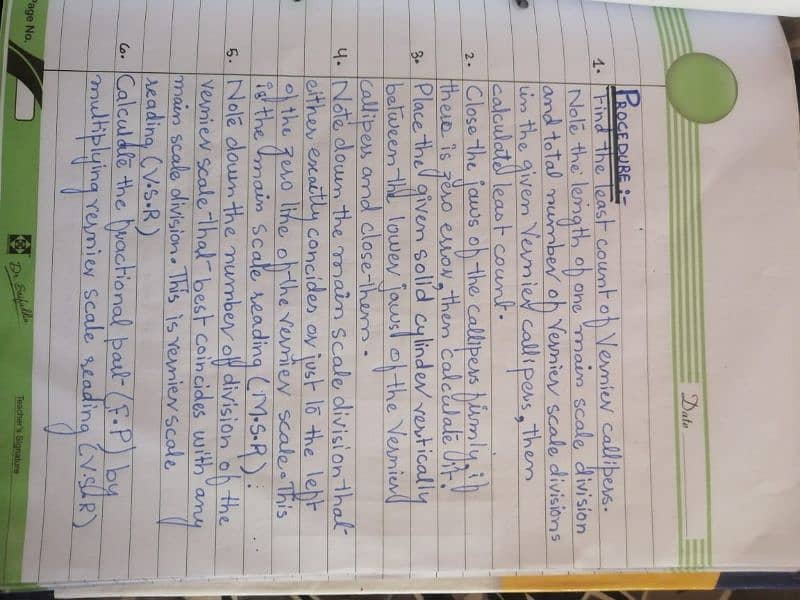 Date
PROCEDURE :-
1. Find the least count of Vernier callipers.
Note the length of one main scale division
and total number of Vernier scale divisions
in the given Vernier callipers, then
calculate least count.
2. Close the jaws of the callipers firmly, if
there is zero error, then calculate it.
3. Place the given solid cylinder vertically
between the lower jaws of the Vernier
callipers and close them.
4. Note down the main scale division that
either exactly concides or just to the left
of the zero line of the vernier scale. This
is the main scale reading (M.S.R).
5. Note down the number of division of the
vernier scale that best coincides with any
main scale division. This is vernier scale
reading (V.S.R)
6. Calculate the fractional part (F.P) by
multiplying vernier scale reading (V.S.R)
Page No.
Dr. Saifullah
Teacher's Signature